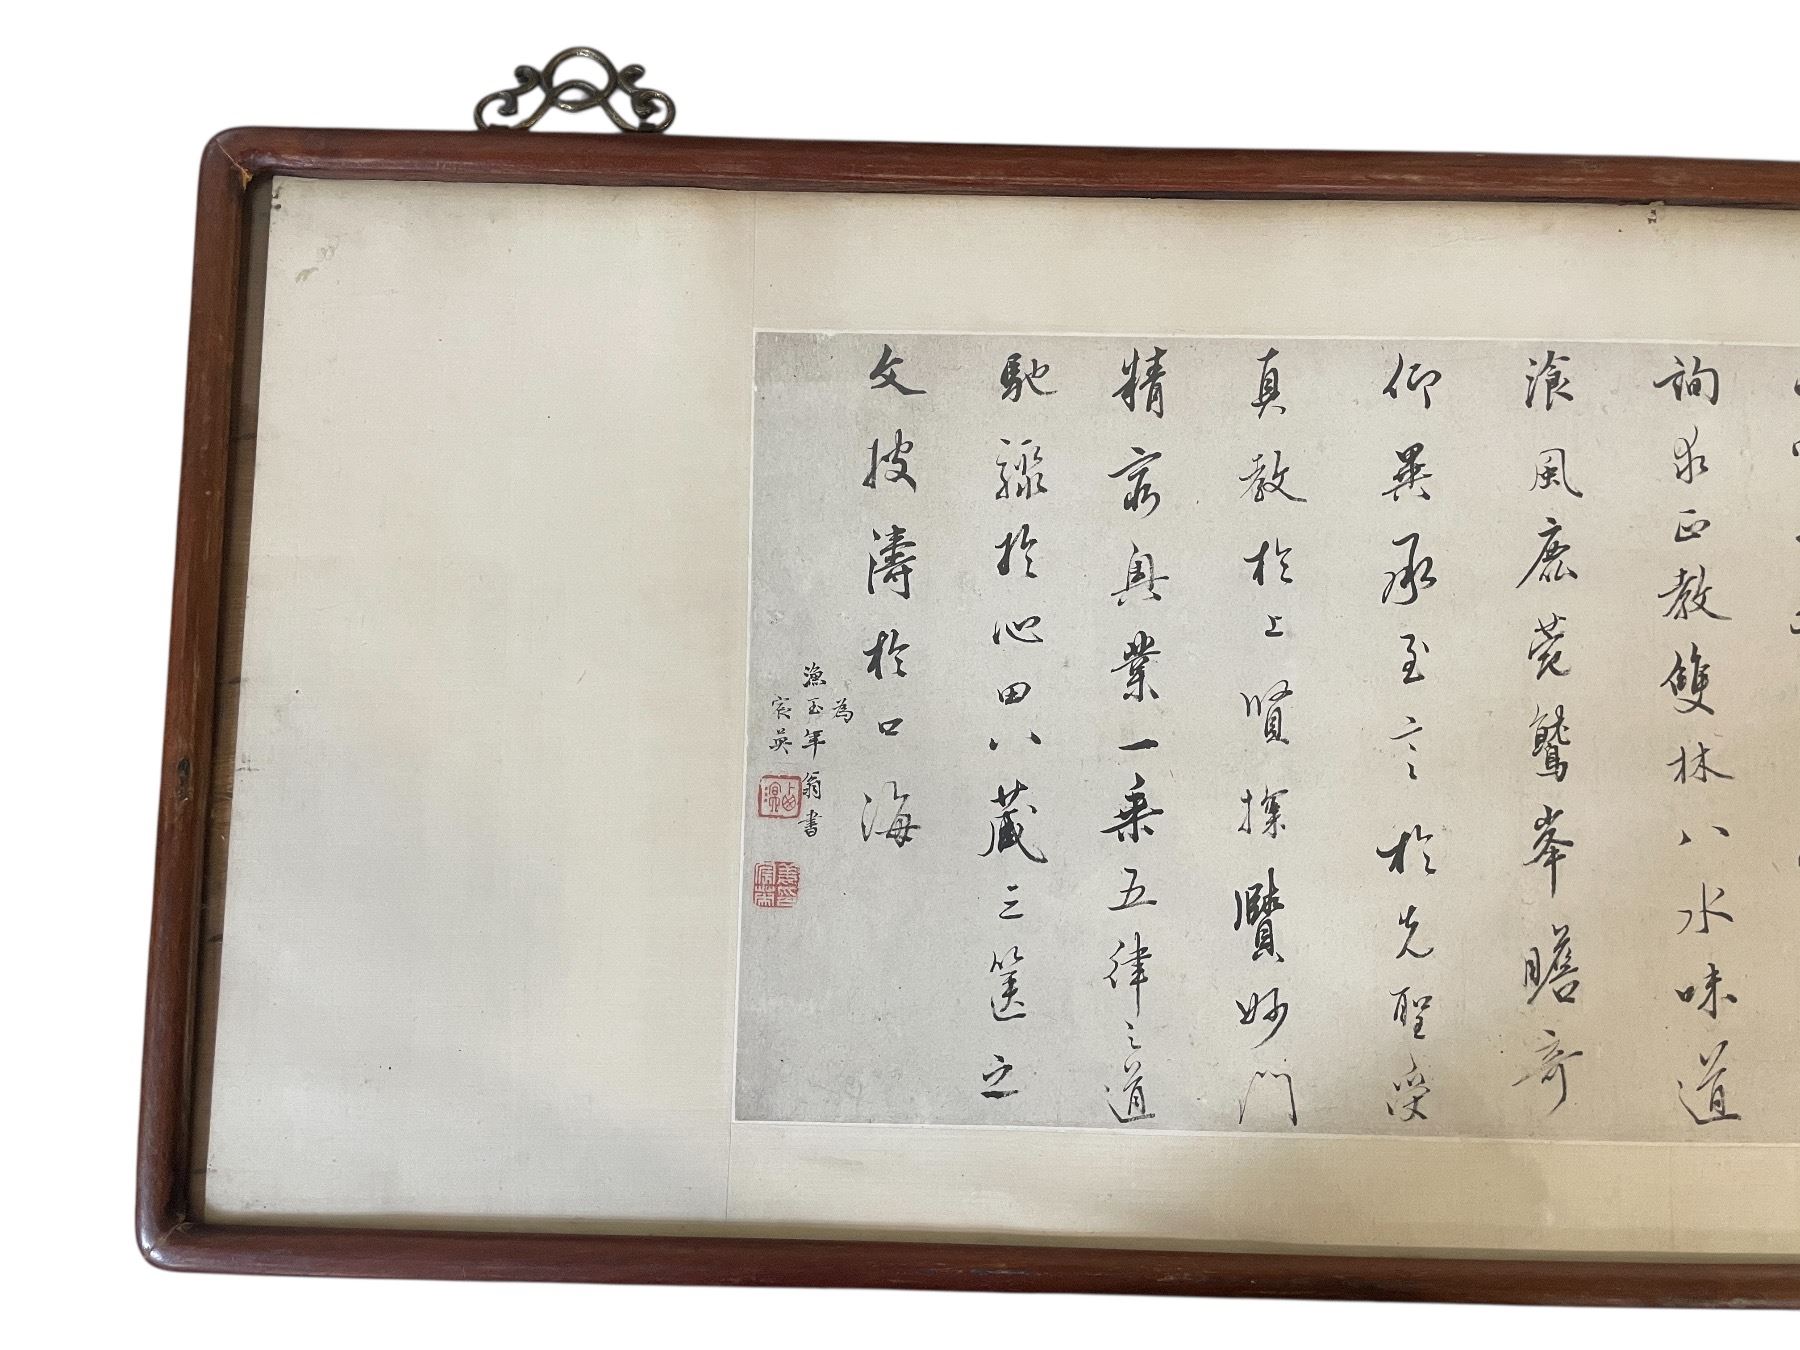 詢求正教雙林八水味道
湌風鹿菀鷲峯瞻奇
仰異承至言於先聖受
真教於上賢探賾妙門
精窮奧業一乘五律之道
馳驟於心田八藏三篋之
文披濤於口海
為
漁玉年翁書
宸英